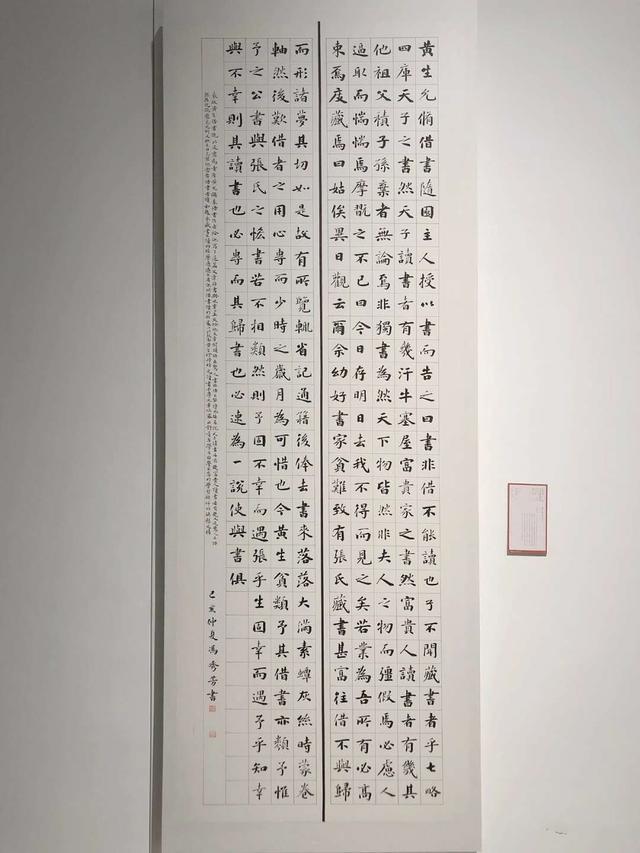 黃生允脩借書隨園主人授以書而告之曰書非借不能讀也子不聞藏書者乎七略
四庫天子之書然天子讀書者有幾汗牛塞屋富貴家之書然富貴人讀書者有幾其
他祖父積子孫棄者無論焉非獨書為然天下物皆然非夫人之物而彊假焉必慮人
逼取而惴惴焉摩翫之不已曰今日存明日去我不得而見之矣若業為吾所有必高
束焉庋藏焉曰姑俟異日觀云爾余幼好書家貧難致有張氏藏書甚富往借不與歸
而形諸夢其切如是故有所覽輒省記通籍後俸去書來落落大滿素蟫灰絲時蒙卷
軸然後歎借者之用心專而少時之歲月為可惜也今黃生貧類予其借書亦類予惟
予之公書與張氏之悋書若不相類然則予固不幸而遇張乎生固幸而遇予乎知幸
與不幸則其讀書也必專而其歸書也必速為一說使與書俱
己亥仲夏馮秀芳書